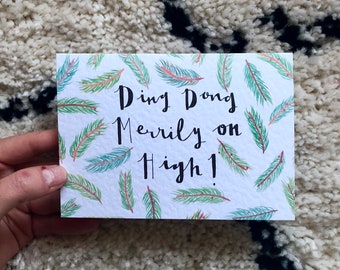 Ding Dong
Merrily on
High!